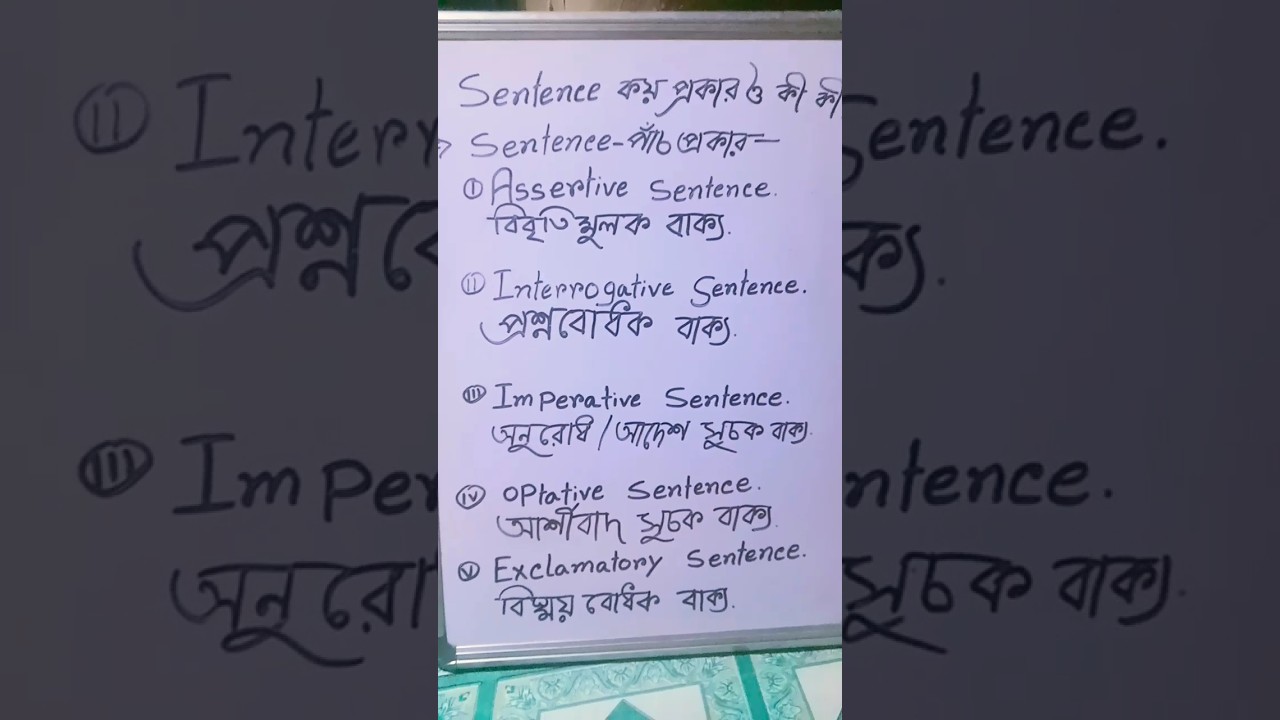 Sentence কয় প্রকার ও কী কী
→ Sentence-পাঁচ প্রকার—
(i) Assertive Sentence.
বিবৃতিমূলক বাক্য.
(ii) Interrogative Sentence.
প্রশ্নবোধক বাক্য.
(iii) Imperative Sentence.
অনুরোধ / আদেশ সূচক বাক্য.
(iv) Optative Sentence.
আর্শীবাদ সূচক বাক্য.
(v) Exclamatory Sentence.
বিস্ময় বোধক বাক্য.